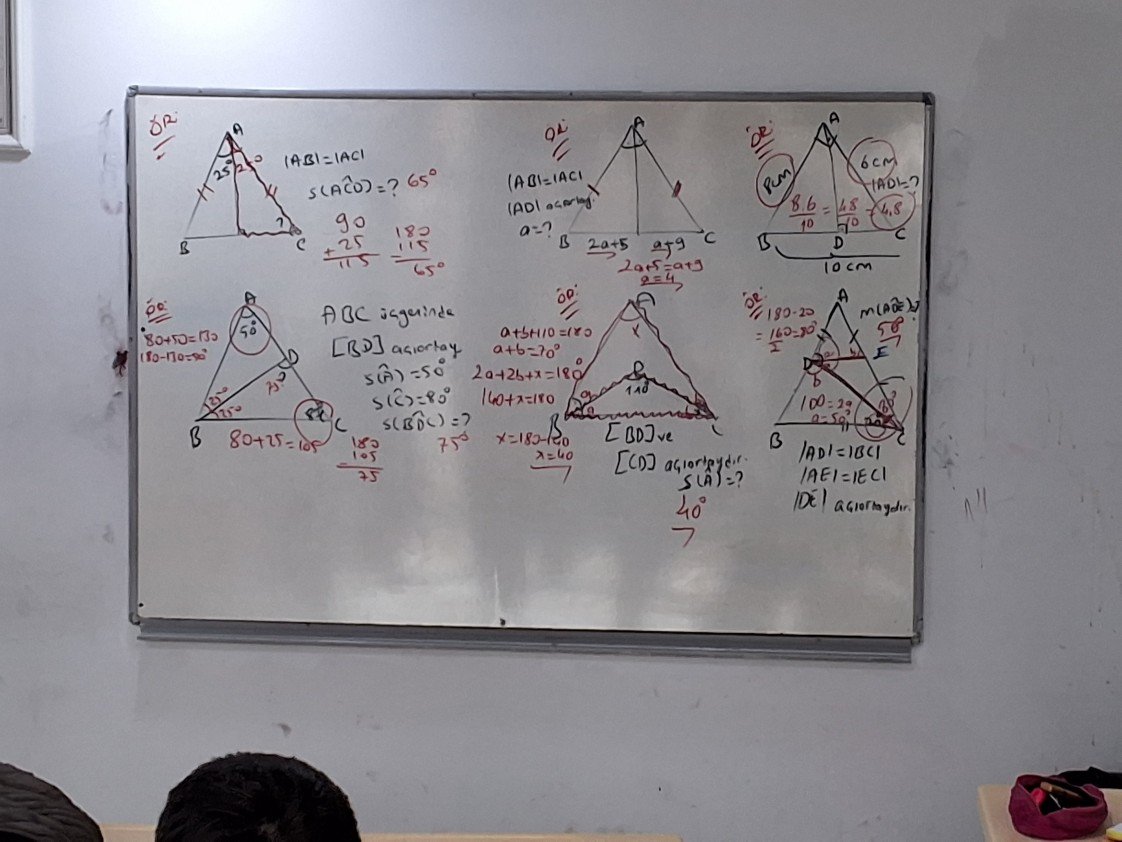 ÖR:
A
25°
25°
|AB|=|AC|
s(AĈD)=? 65°
90
+25
115
180
115
65°
?
B
C
ÖR:
A
|AB|=|AC|
|AD| açıortay.
a=?
B
2a+5
a+9
C
2a+5=a+9
a=4
ÖR:
A
8cm
6cm
|AD|=?
8.6/10 = 48/10 = 4,8
B
D
C
10cm
ÖR:
80+50=130
180-130=50°
A
50°
D
75°
25°
25°
B
C
80+25=105
180
-105
75
ABC üçgeninde
[BD] açıortay
s(Â)=50°
s(Ĉ)=80°
s(BD̂C)=?
75°
ÖR:
A
x
a+b+110=180
a+b=70°
2a+2b+x=180°
140+x=180
x=180-140
x=40
D
110°
B
C
[BD] ve
[CD] açıortaydır.
s(Â)=?
40°
ÖR:
180-20
=160=80°
2
A
50°
E
100=2a
a=50°
B
C
|AD|=|BC|
|AE|=|EC|
|DE| açıortaydır.